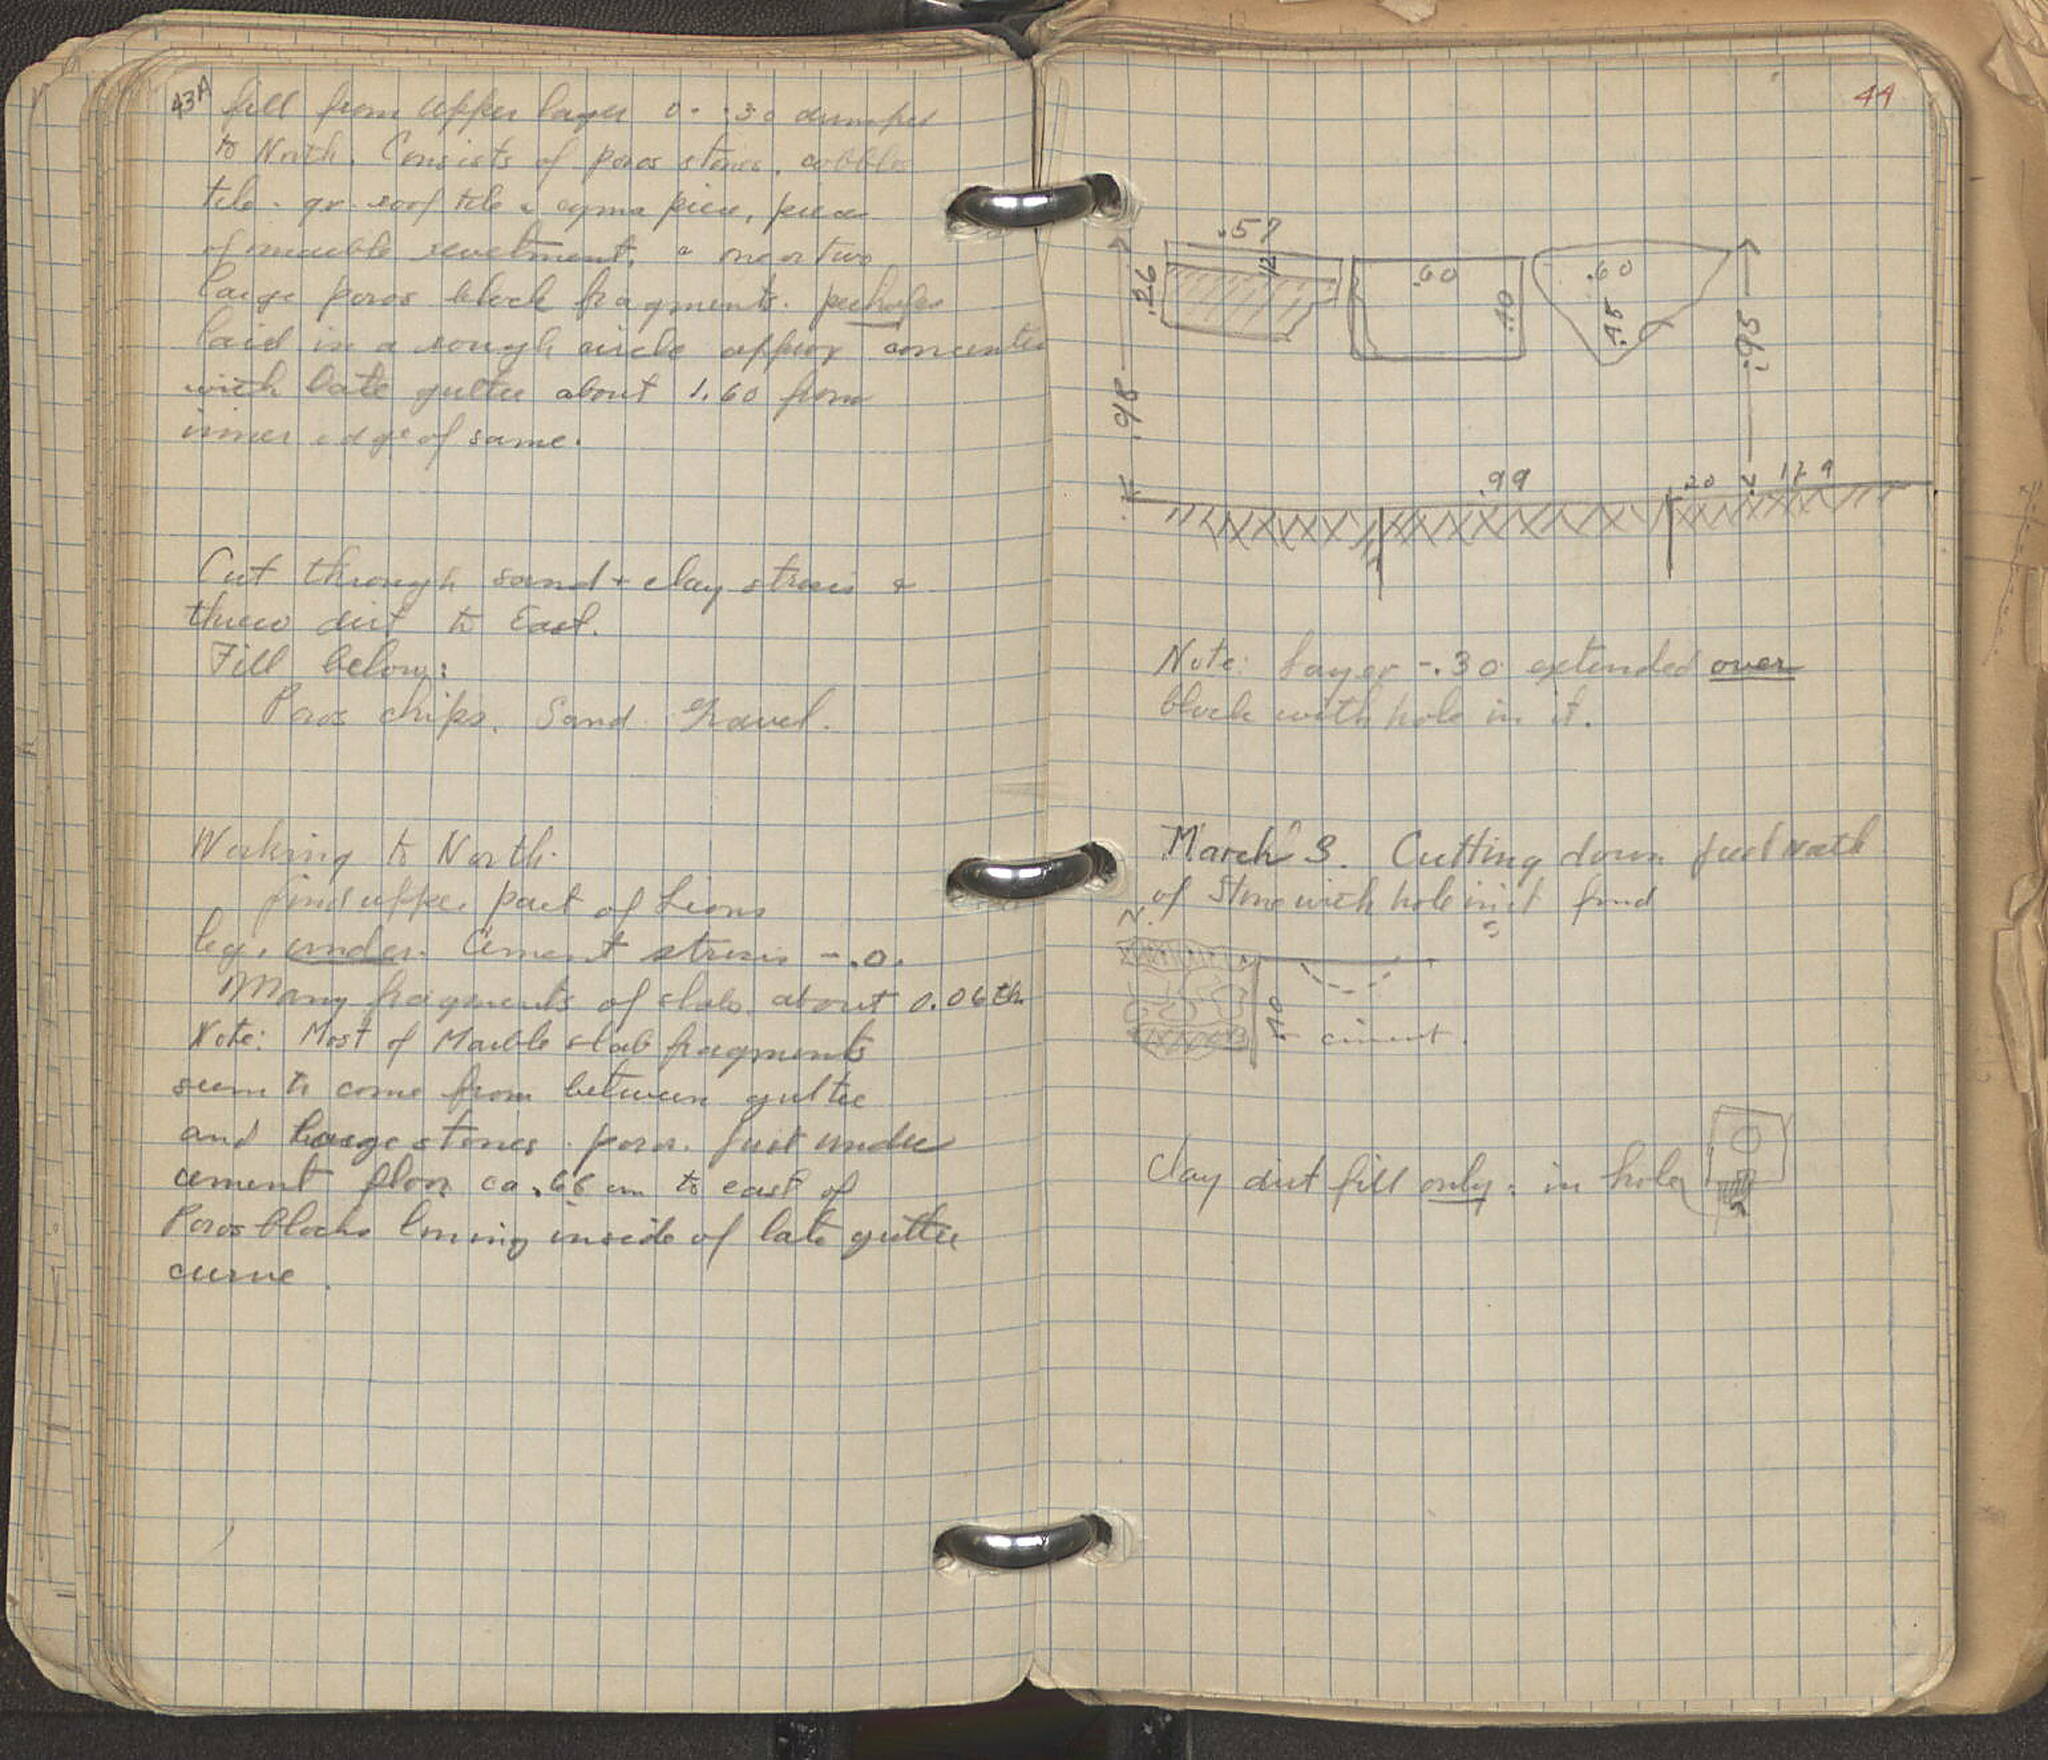 43A
fill from upper layer 0 - .30 dumped
to North. Consists of poros stones, cobbles
tile - gr. roof tile & cyma piece, piece
of marble revetment, & one or two
large poros block fragments. perhaps
laid in a rough circle approx concentric
with late gutter about 1.60 from
inner edge of same.
Cut through sand + clay strosis &
threw dirt to East.
Fill below:
Poros chips. Sand. Gravel.
Working to North.
find upper part of Lions
leg. under cement strosis - .0.
Many fragments of slab about 0.06 th.
Note: Most of Marble slab fragments
seem to come from between gutter
and large stones. poros. Just under
cement floor ca .66 cm to east of
Poros blocks lining inside of late gutter
curve.
44
.57
.26
.12
.60
.40
.60
.45
.98
.95
.99
.20
Note: Layer -.30 extended over
block with hole in it.
March 3. Cutting down just north
of stone with hole in it find
N
.40
cement.
Clay dirt fill only: in hole